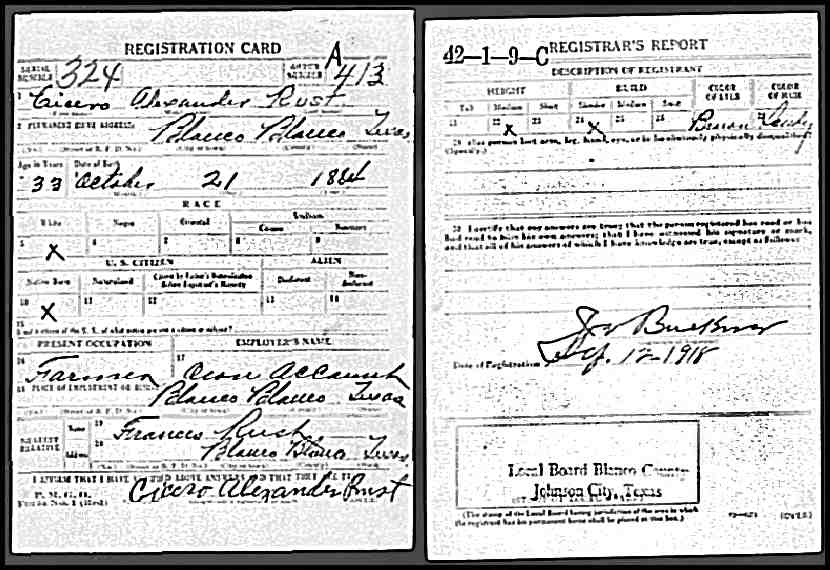 REGISTRATION CARD
SERIAL NUMBER 324 ORDER NUMBER A 413
1 Cicero Alexander Rust
2 PERMANENT HOME ADDRESS: Blanco Blanco Texas
Age in Years Date of Birth
33 October 21 1884
RACE
White Negro Oriental Indian
Citizen
5 X 6 7 8 9
U. S. CITIZEN ALIEN
Native Born Naturalized Declarant Non-declarant
10 X 11 12 13 14
15
PRESENT OCCUPATION EMPLOYER'S NAME
16 Farmer 17 Own Account
18 PLACE OF EMPLOYMENT OR BUSINESS
Blanco Blanco Texas
NEAREST RELATIVE Name 19 Frances Rust
Address 20 Blanco Blanco Texas
I AFFIRM THAT I HAVE VERIFIED ABOVE ANSWERS AND THAT THEY ARE TRUE
P. M. G. O.
Form No. 1 (Red) Cicero Alexander Rust
42-1-9-C REGISTRAR'S REPORT
DESCRIPTION OF REGISTRANT
HEIGHT BUILD COLOR OF EYES COLOR OF HAIR
Tall Medium Short Slender Medium Stout
21 22 X 23 24 X 25 26 27 Brown 28 Sandy
29 Has person lost arm, leg, hand, eye, or is he obviously physically disqualified?
(Specify.)
30 I certify that my answers are true; that the person registered has read or has
had read to him his own answers; that I have witnessed his signature or mark,
and that all of his answers of which I have knowledge are true, except as follows:
Date of Registration Sep. 12-1918
Local Board Blanco County
Johnson City, Texas
(The stamp of the Local Board having jurisdiction of the area in which
the registrant has his permanent home shall be placed in this box.)